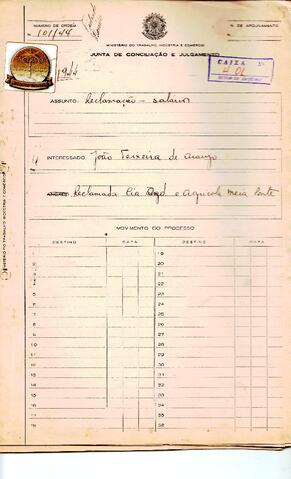 NUMERO DE ORDEM
101/44
N. DE ARQUIVAMENTO
MINISTÉRIO DO TRABALHO, INDÚSTRIA E COMÉRCIO
JUNTA DE CONCILIAÇÃO E JULGAMENTO
CAIXA Nº
4 01
1944
ASSUNTO: Reclamação - salarios
INTERESSADO João Teixeira de Araujo
Reclamada Cia e Agricola Meia Ponte
MOVIMENTO DO PROCESSO
DESTINO DATA DESTINO DATA
1 19
2 20
3 21
4 22
5 23
6 24
7 25
8 26
9 27
10 28
11 29
12 30
13 31
14 32
15 33
16 34
17 35
18 36